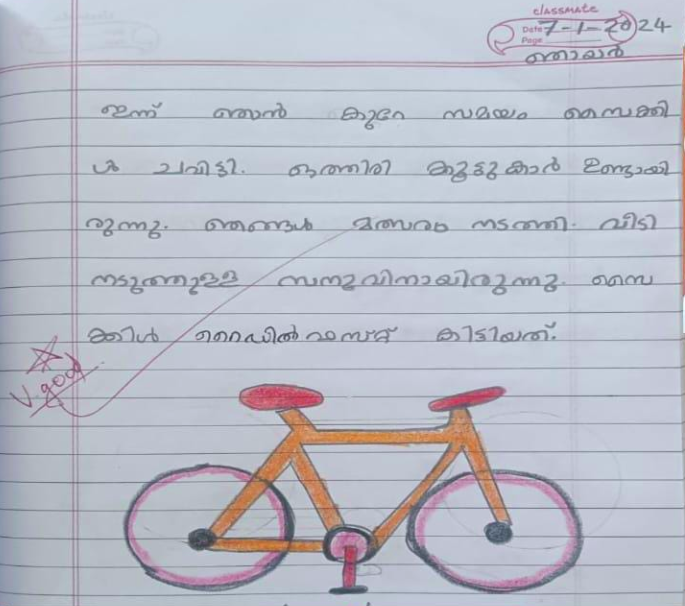 classmate
Date 7-1-2024
Page
ഞായർ
ഇന്ന് ഞാൻ കുറേ സമയം സൈക്കി
ൾ ചവിട്ടി. ഒത്തിരി കൂട്ടുകാർ ഉണ്ടായി
രുന്നു. ഞങ്ങൾ മത്സരം നടത്തി. വീടി
നടുത്തുള്ള സനുവിനായിരുന്നു. സൈ
ക്കിൾ റൈഡിൽ ഫസ്റ്റ് കിട്ടിയത്.
V.good